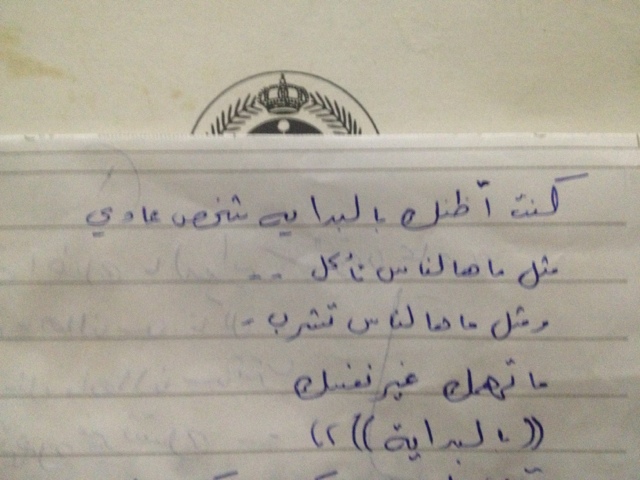 كنت أظنك بالبدايه شخص عادي
مثل ماهالناس تأكل ..
ومثل ماهالناس تشرب ..
ماتهمك غير نفسك
((بالبداية))